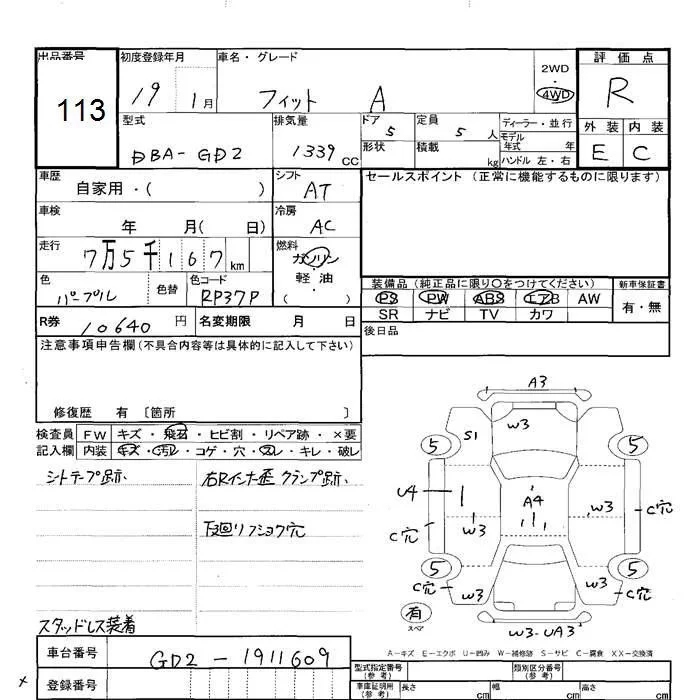 出品番号 初度登録年月 車名・グレード 評価点
113 19 1月 フィット A 2WD・4WD R
型式 排気量 ドア 5 定員 5人 ディーラー・並行 外装 内装
DBA-GD2 1339cc 形状 積載 kg モデル年式 年 E C
ハンドル 左・右
車歴 自家用・( ) シフト AT セールスポイント (正常に機能するものに限ります)
車検 年 月( 日) 冷房 AC
走行 7万5千167km 燃料 ガソリン
軽・油
( )
色 パープル 色替 色コード RP37P
装備品 (純正品に限り〇をつけてください) 新車保証書
PS PW ABS エアB AW 有・無
SR ナビ TV カワ
R券 10640円 名変期限 月 日 後日品
注意事項申告欄(不具合内容等は具体的に記入して下さい)
修復歴 有 〔箇所 〕
検査員 FW キズ・飛石・ヒビ割・リペア跡・×要
記入欄 内装 キズ・汚レ・コゲ・穴・スレ・キレ・破レ
シートテープ跡、 右Rインナー歪 クランプ跡、
下廻リフショク穴
スタッドレス装着
A3
W3
S1
5 5
U4 A4 W3 C穴
C穴 W3
5 5
C穴 W3 W3 C穴
有
スペア
W3-UA3
A-キズ E-エクボ U-凹み W-補修跡 S-サビ C-腐食 XX-交換済
車台番号 GD2-1911609
型式指定番号 (参考) 類別区分番号 (参考)
× 登録番号
車庫証明用 (参考) 長さ cm 幅 cm 高さ cm